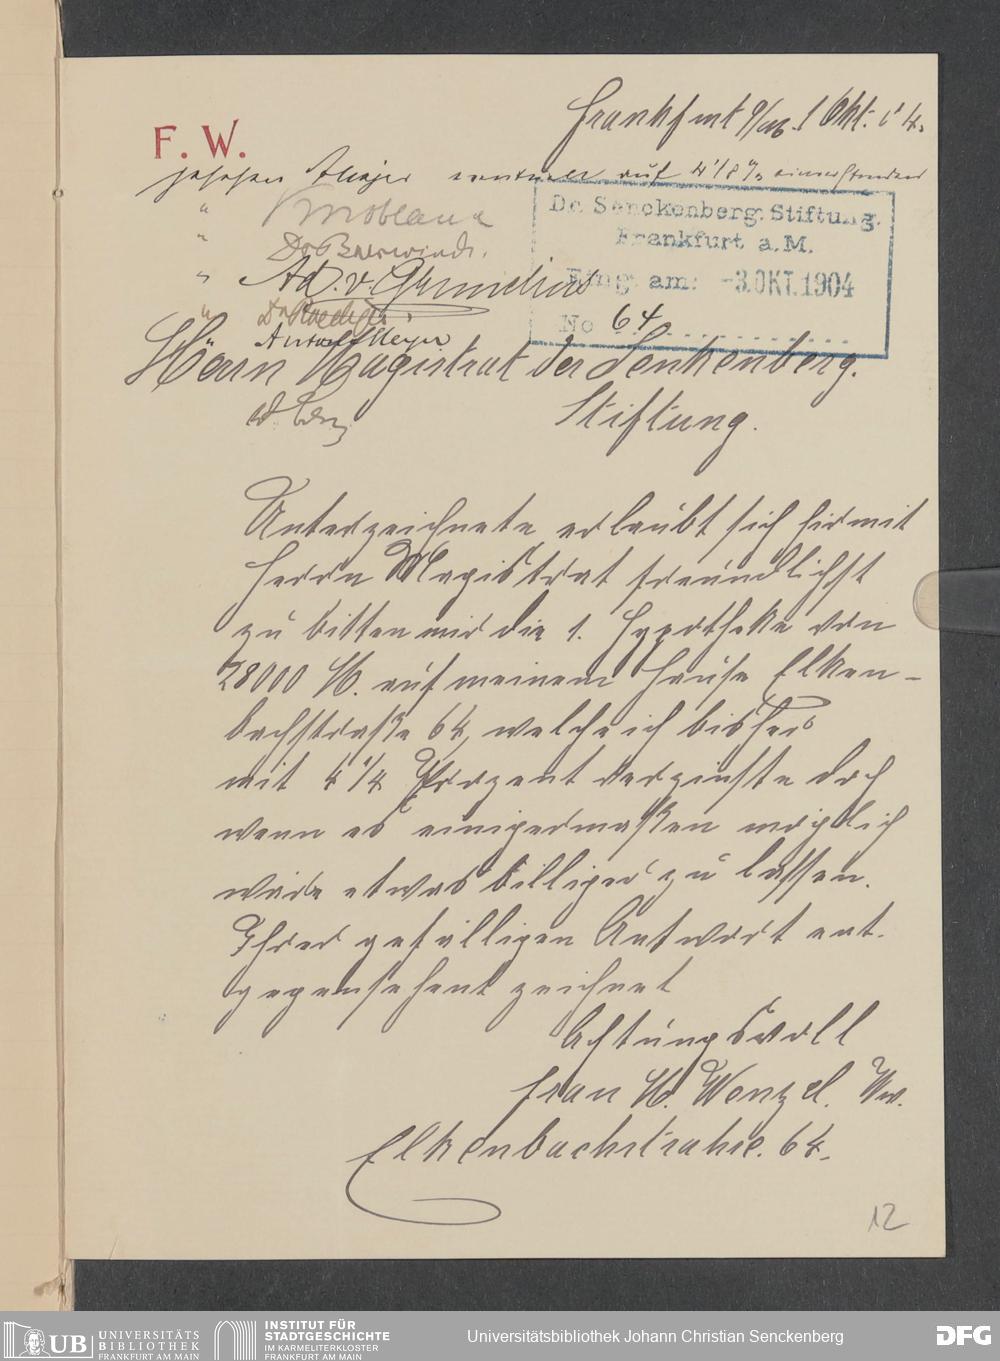 Frankfurt a/M. 1 Okt. 04.
F. W.
gesehen Meyer eventuell auf 4 1/8 % einverstanden
"
" Dr Baerwind.
" Ad. v. Grunelius
" Dr Roediger.
Anton Meyer
Dr. Senckenberg. Stiftung.
Frankfurt a. M.
Eing. am: -3. OKT. 1904
No 64
Herrn Magistrat der Senkenberg.
Stiftung.
Unterzeichnete erlaubt sich hirmit
Herrn Magistrat freundlichst
zu bitten mir die 1. Hypotheke von
28000 M. auf meinem Hause Elken-
bachstraße 64, welche ich bisher
mit 4 1/4 Prozent verzinste doch
wenn es einigermaßen möglich
wäre etwas billiger zu lassen.
Ihrer gefälligen Antwort ent-
gegensehent zeichnet
Achtungsvoll
Frau M. Wenzel. Ww.
Elkenbachstrahse. 64.
12
UB UNIVERSITÄTS
BIBLIOTHEK
FRANKFURT AM MAIN
INSTITUT FÜR
STADTGESCHICHTE
IM KARMELITERKLOSTER
FRANKFURT AM MAIN
Universitätsbibliothek Johann Christian Senckenberg
DFG